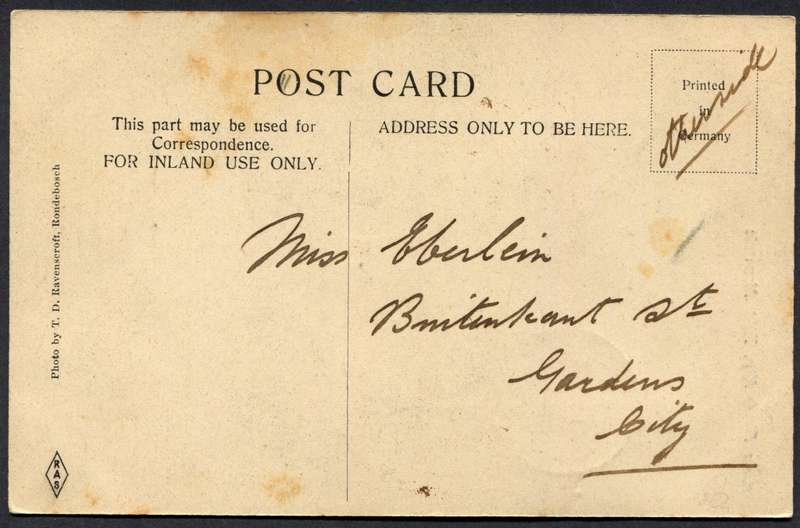 POST CARD
This part may be used for
Correspondence.
FOR INLAND USE ONLY.
ADDRESS ONLY TO BE HERE.
Printed
in
Germany
otherside
Miss Eberlein
Buitenkant St
Gardens
City
Photo by T. D. Ravenscroft, Rondebosch
RAS